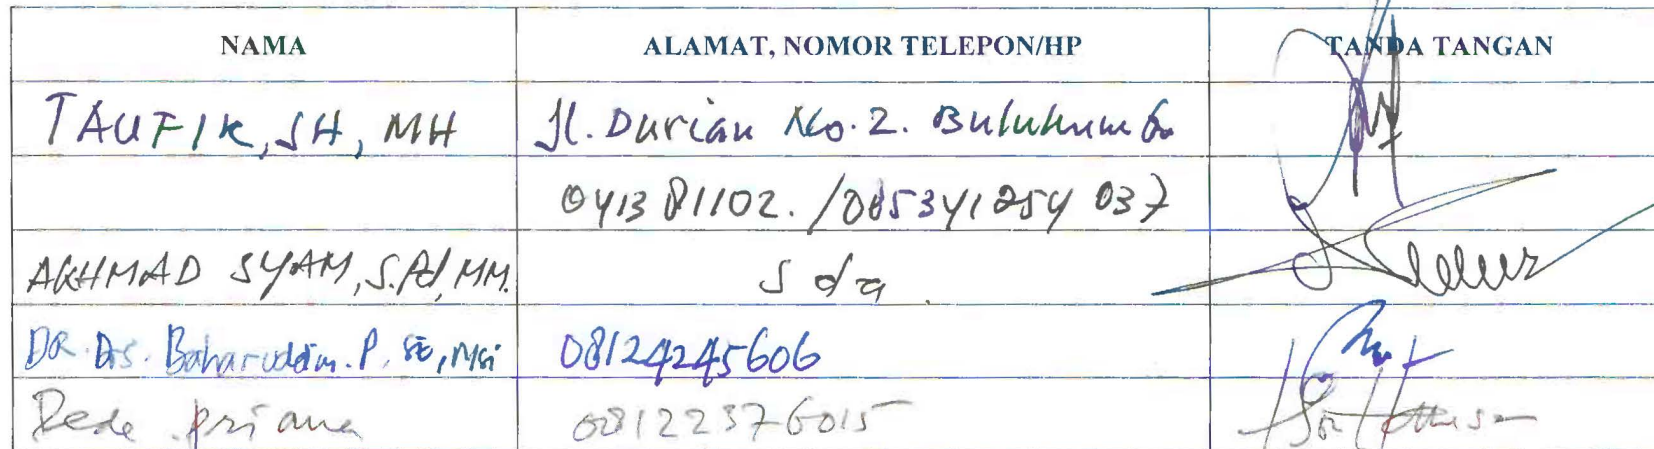 NAMA ALAMAT, NOMOR TELEPON/HP TANDA TANGAN
TAUFIK, SH, MH Jl. Durian No. 2. Bulukumba
041381102. /085341254037
AKHMAD SYAM, S.Pd, MM. sda.
DR. Drs. Baharuddin. P, SE, MSi 08124245606
Dede priana 081223376015